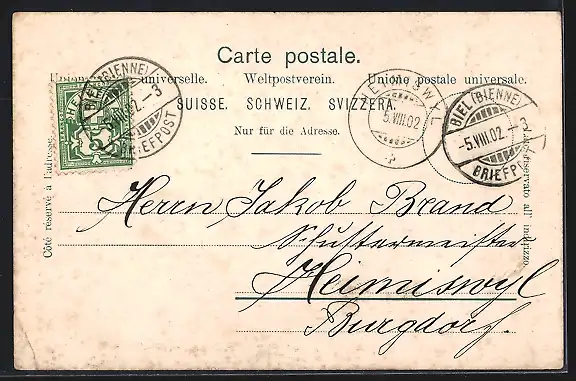 Carte postale.
Union postale universelle. Weltpostverein. Unione postale universale.
SUISSE. SCHWEIZ. SVIZZERA.
Nur für die Adresse.
Côté réservé à l'adresse.
Lato riservato all' indirizzo.
BIEL (BIENNE)
5.VIII.02.–3
BRIEFPOST
5.VIII.02
BIEL (BIENNE)
–5.VIII.02.–3
BRIEFPO
Herrn Jakob Brand
Schustermeister
Heimiswyl
Burgdorf.